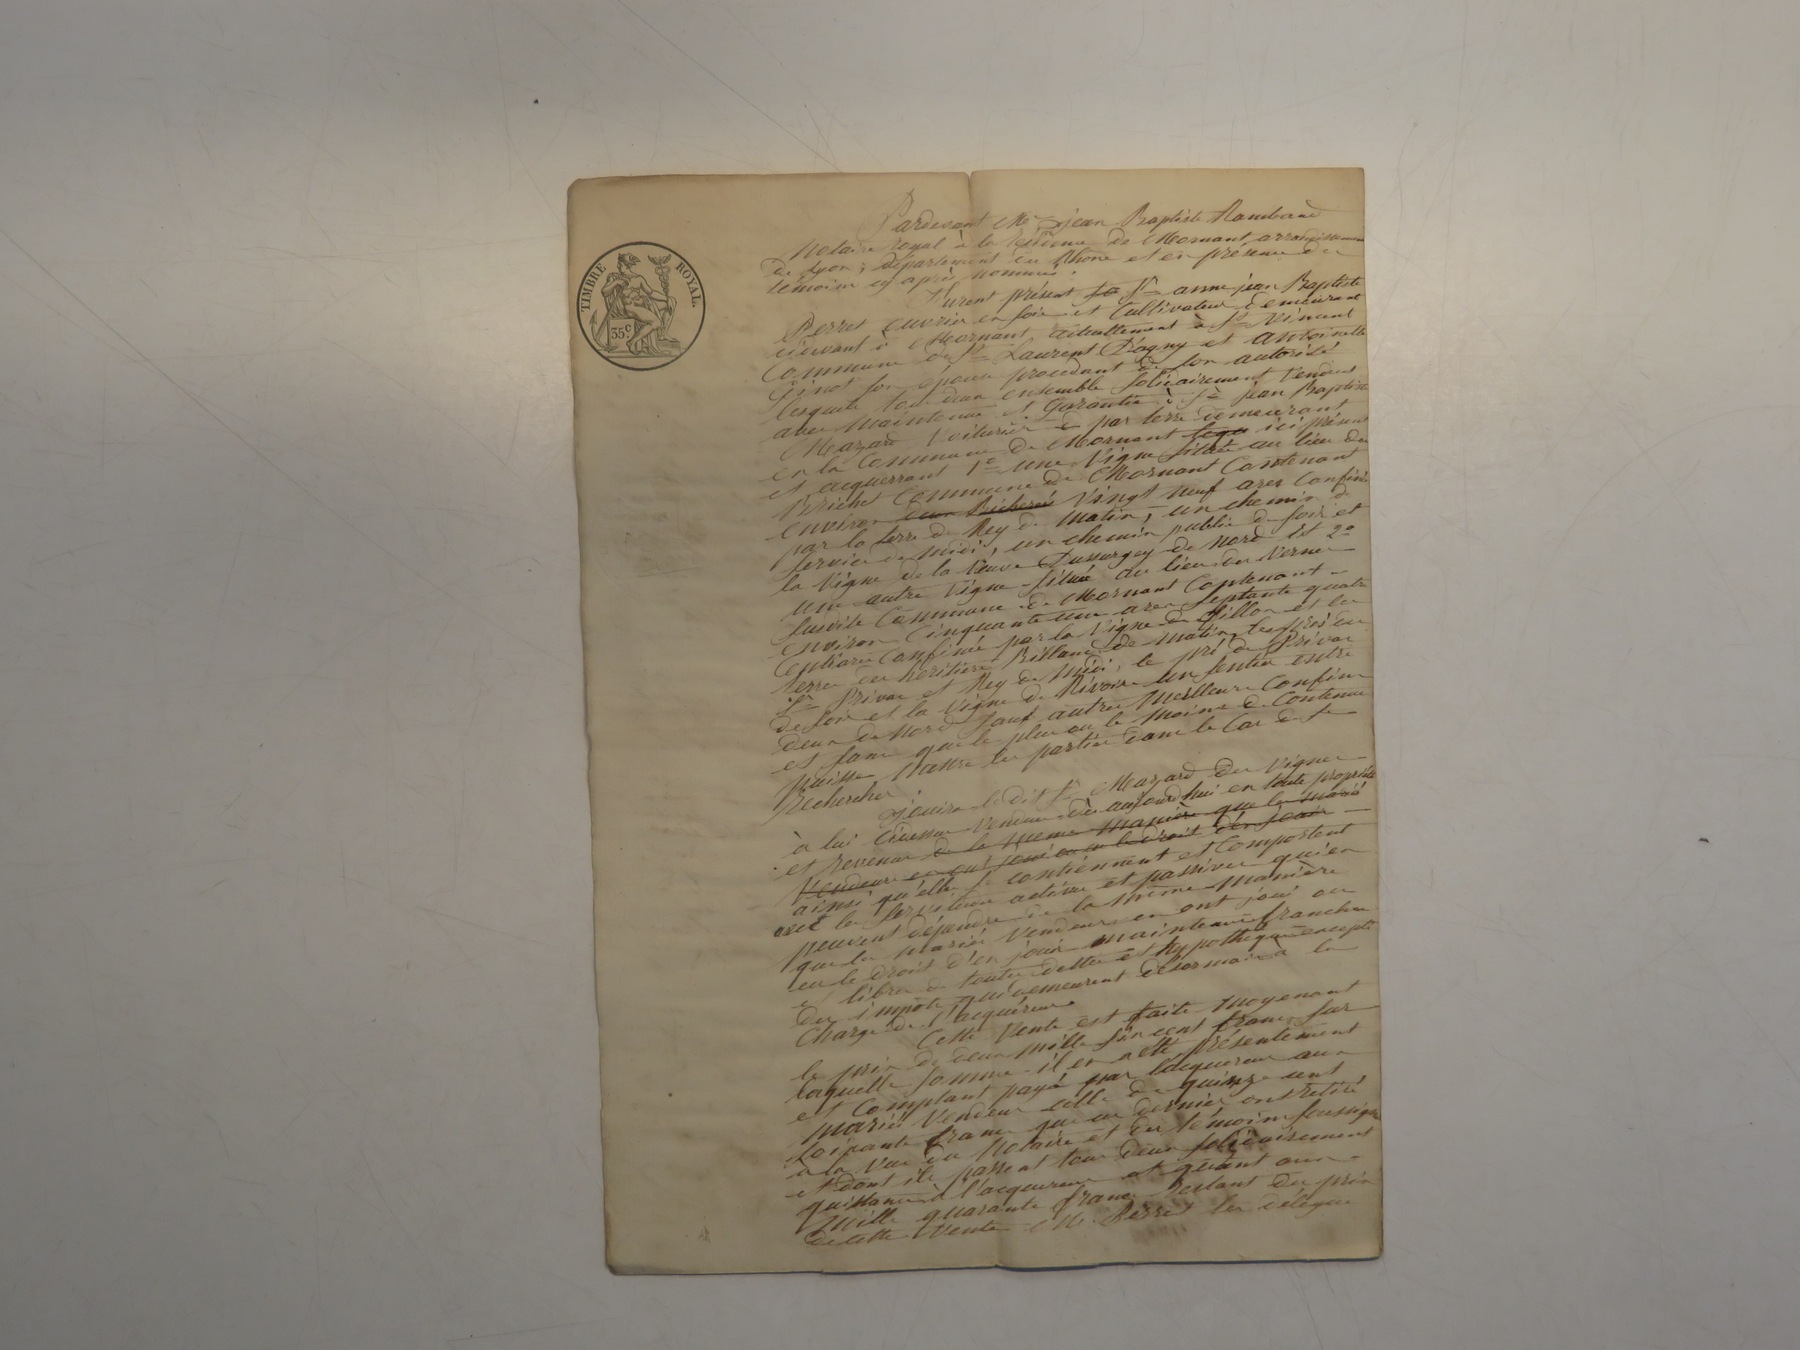 TIMBRE ROYAL.
35 c.
Pardevant Me Jean Baptiste Rambaud
Notaire royal à la résidence de Mornant arrondissement
de Lyon, département du Rhône et en présence des
témoins cy après nommés.
Furent présent Sr anne jean Baptiste
Perret ouvrier en soie et Cultivateur demeurant
cidevant à Mornant actuellement à St Vincent
Commune de St Laurent D'agny et antoinette
son épouse procedant de son autorité
lesquels tous deux ensemble solidairement Vendent
avec maintenue et Garantie à Sr jean Baptiste
Mazard Voiturier par terre demeurant
en la Commune de Mornant ici présent
et acquerrant 1o une Vigne située au lieu du
Briche Commune de Mornant Contenant
environ deux Bicherés Vingt neuf ares Confinée
par la terre de Rey de matin, un chemin de
service de midi, un chemin public de soir et
la Vigne de la Veuve Dussurgey de nord Et 2o
une autre Vigne située au lieu du Verne
susdite Commune de Mornant Contenant
environ Cinquante une ares Septante quatre
Centiares Confinée par la Vigne de et les
terres des héritiers Rillard de matin, les prés du
Sr Privas et Rey de Midi, le pré de Privas
de soir et la Vigne de Rivoire un sentier entre
deux de Nord sauf autres Meilleurs Confins
et sans que le plus ou le moins de Contenue
puisse Nuire les parties dans le Cas de se
Rechercher.
jouira ledit Sr Mazard des Vignes
à lui cidessus Vendues dès aujourd'hui en toute propriété
et revenus de la meme manière que les mariés
Vendeurs en ont joui ou eu le droit d'en jouir
ainsi qu'elles se contiénnent et Comportent
avec les servitudes actives et passives qui en
peuvent dépendre de la même manière
que les mariés Vendeurs en ont joui ou
eu le droit d'en jouir maintenues franches
et libres de toutes dettes et hypothèques excepté
des impôts qui demeurent désormais à la
Charge de l'acquéreur.
Cette Vente est faite moyenant
le prix de deux mille six cent francs sur
laquelle somme il en a été présentement
et Comptant payé par l'acquereur aux
mariés Vendeurs celle de quinze cent
soixante francs que ces derniers ont retiré
à la Vue du Notaire et des témoins soussignés
et dont ils passent tous deux solidairement
quittance à l'acquereur et quant aux
Mille quarante francs Restant du prix
de cette Vente Perret les délégue